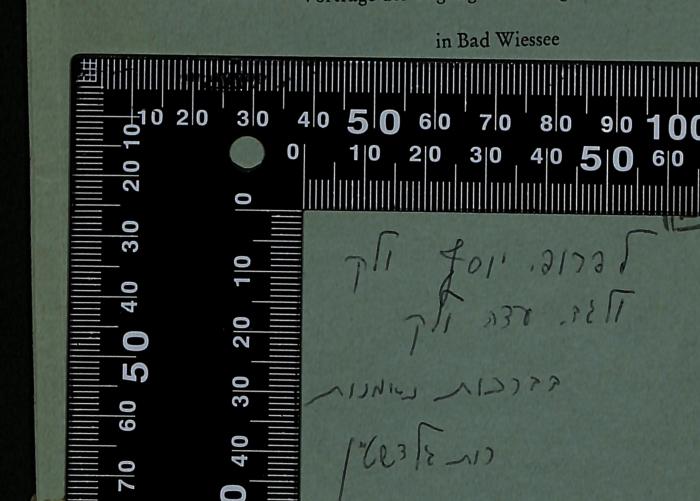 in Bad Wiessee
10 20 30 40 50 60 70 80 90 100
0 10 20 30 40 50 60
10 20 30 40 50 60 70
0 10 20 30 40
לפרופ. יוסף ולק
ולגב. עדה ולק
בברכות נאמנות
רות גולדשטיין